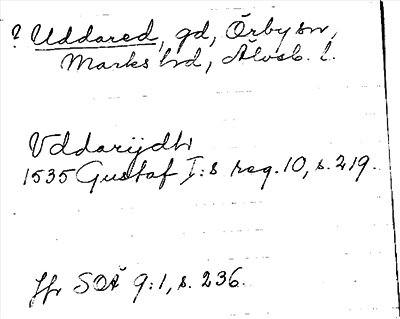 ? Uddared, gd, Örby sn,
Marks hd, Älvsb. l.
Vddarijdh
1535 Gustaf I:s reg. 10, s. 219.
Jfr SOÄ 9:1, s. 236.